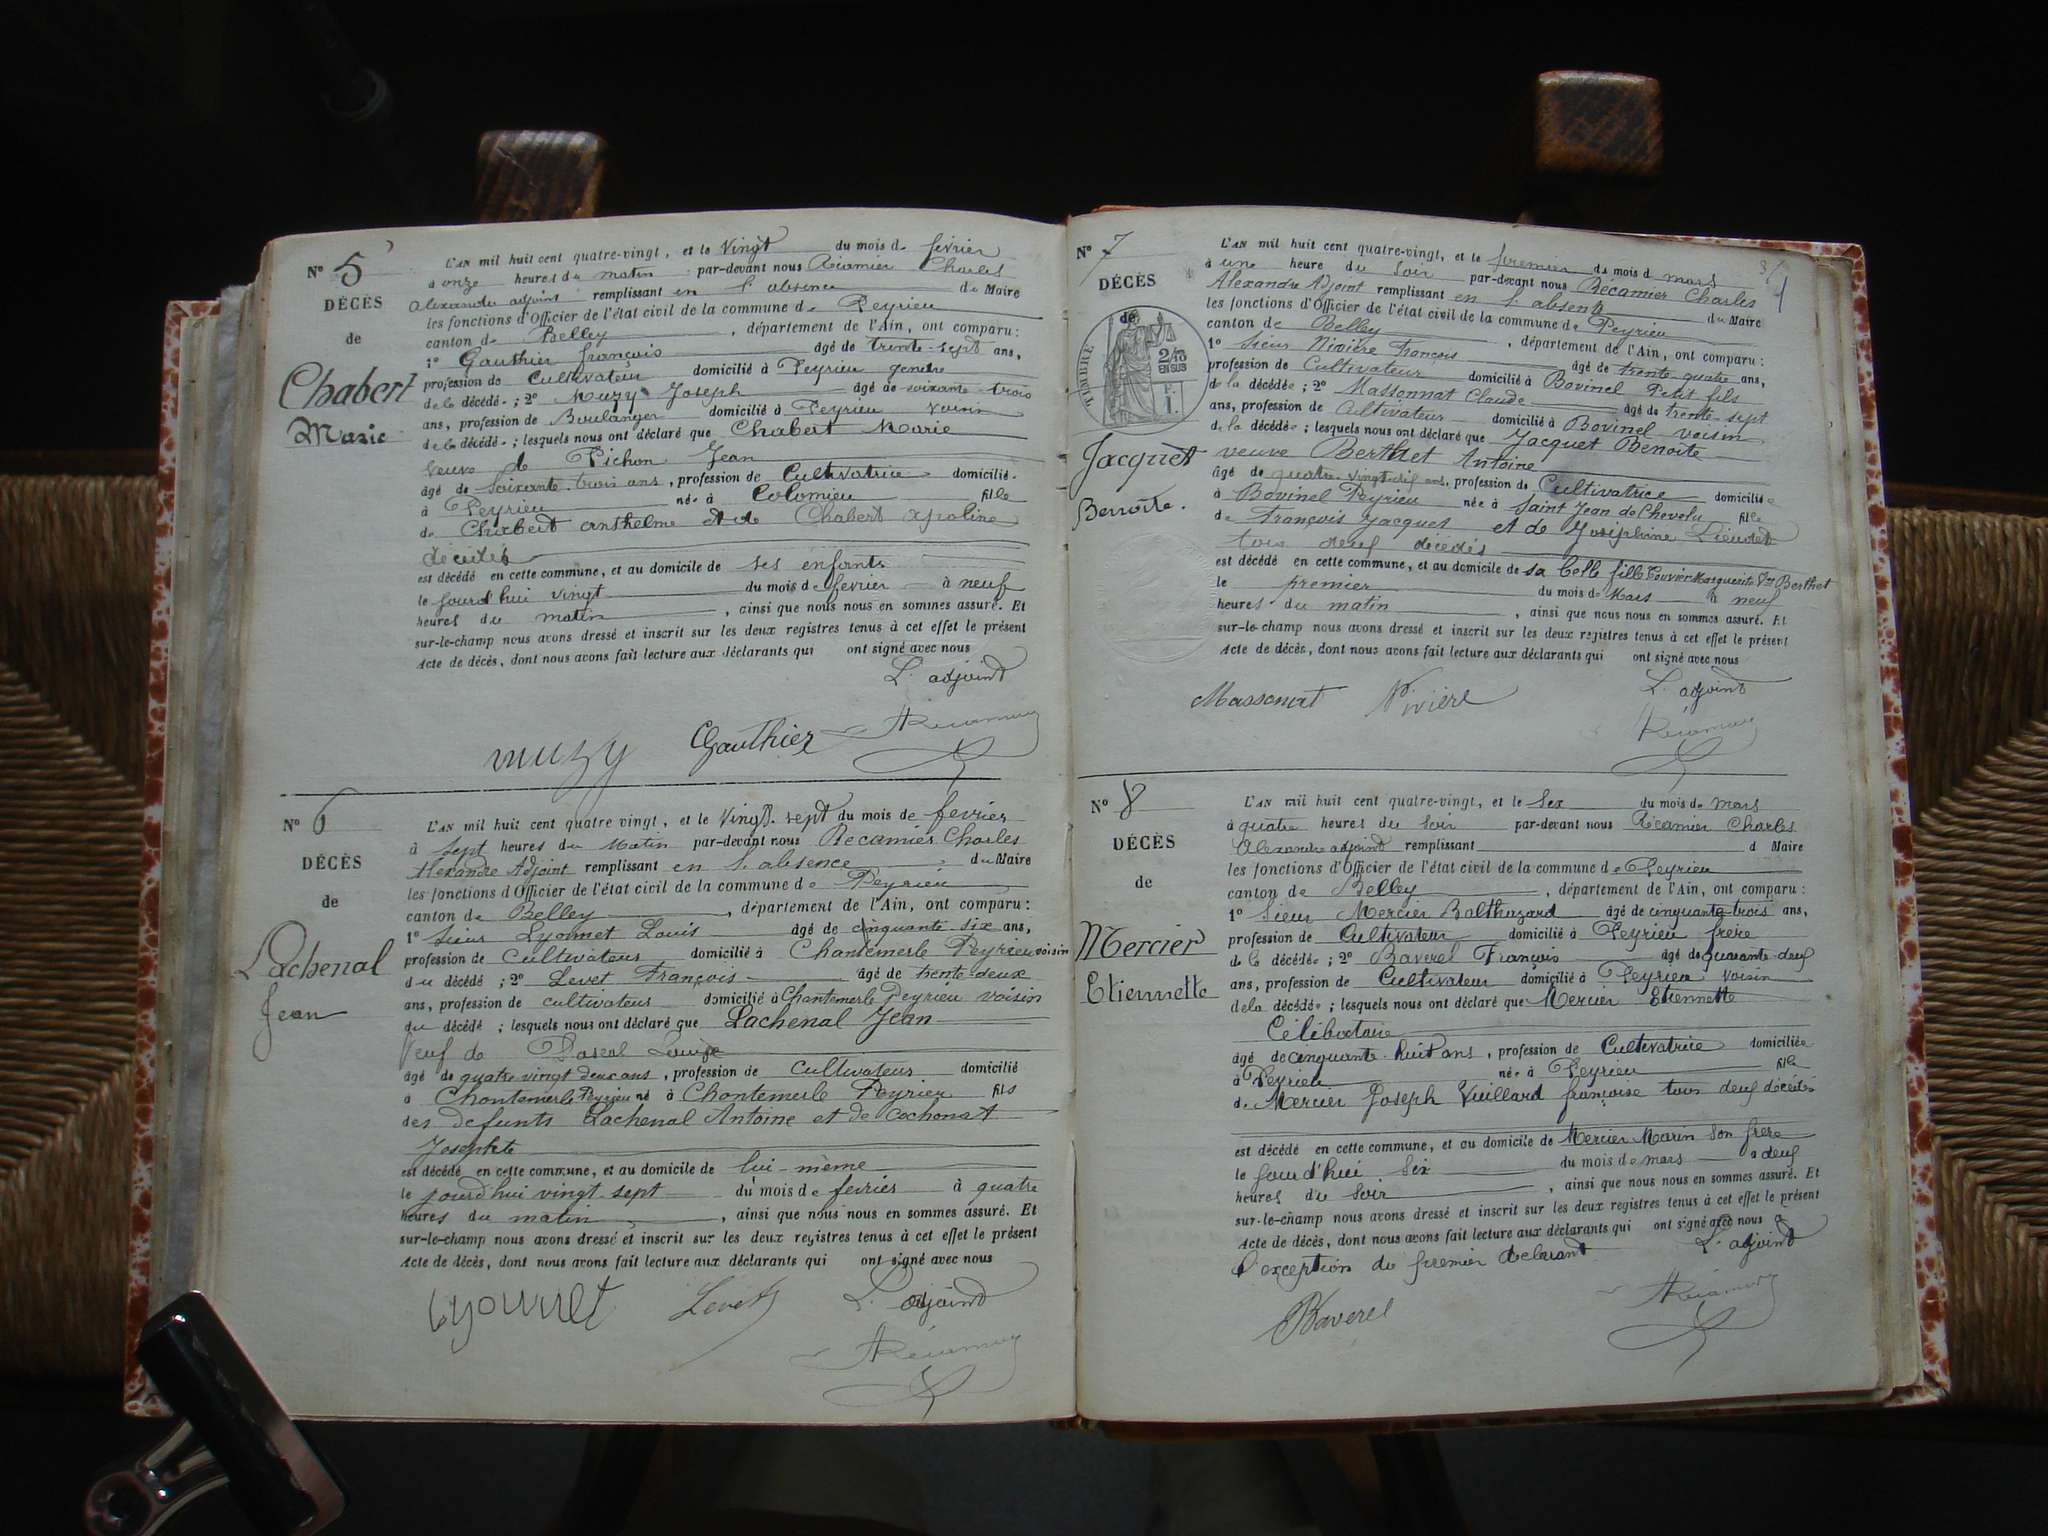 N° 5
DÉCÈS
de
Chabert
Marie
L'AN mil huit cent quatre-vingt, et le Vingt du mois de février
à onze heures du matin par-devant nous Récamier Charles
Alexandre adjoint remplissant en l'absence du Maire
les fonctions d'Officier de l'état civil de la commune de Peyrieu
canton de Belley, département de l'Ain, ont comparu :
1° Gauthier françois âgé de trente-sept ans,
profession de Cultivateur domicilié à Peyrieu gendre
de la décédée ; 2° Muzy Joseph âgé de soixante-trois
ans, profession de Boulanger domicilié à Peyrieu voisin
de la décédée ; lesquels nous ont déclaré que Chabert Marie
Veuve de Pichon Jean
âgé de Soixante-trois ans, profession de Cultivatrice domiciliée
à Peyrieu née à Colomieu fille
de Chabert anthelme et de Chabert apoline
décédés
est décédé en cette commune, et au domicile de ses enfants
le jourd'hui vingt du mois de fevrier à neuf
heures du matin, ainsi que nous nous en sommes assuré. Et
sur-le-champ nous avons dressé et inscrit sur les deux registres tenus à cet effet le présent
Acte de décès, dont nous avons fait lecture aux déclarants qui ont signé avec nous
L'adjoint
muzy Gauthier ARécamier
N° 6
DÉCÈS
de
Lachenal
Jean
L'AN mil huit cent quatre vingt, et le Vingt-sept du mois de fevrier
à sept heures du Matin par-devant nous Recamier Charles
Alexandre Adjoint remplissant en l'absence du Maire
les fonctions d'Officier de l'état civil de la commune de Peyrieu
canton de Belley, département de l'Ain, ont comparu :
1° Sieur Lyonnet Louis âgé de cinquante six ans,
profession de Cultivateur domicilié à Chantemerle Peyrieu voisin
du décédé ; 2° Levet François âgé de trente-deux
ans, profession de cultivateur domicilié à Chantemerle Peyrieu voisin
du décédé ; lesquels nous ont déclaré que Lachenal Jean
Veuf de Pascal Louise
âgé de quatre vingt deux ans, profession de Cultivateur domicilié
à Chantemerle Peyrieu né à Chantemerle Peyrieu fils
des defunts Lachenal Antoine et de Cochonat
Josephte
est décédé en cette commune, et au domicile de lui-même
le jourd'hui vingt sept du mois de fevrier à quatre
heures du matin, ainsi que nous nous en sommes assuré. Et
sur-le-champ nous avons dressé et inscrit sur les deux registres tenus à cet effet le présent
Acte de décès, dont nous avons fait lecture aux déclarants qui ont signé avec nous
Lyonnet Levet L'adjoint
ARécamier
N° 7
DÉCÈS
de
TIMBRE
2/10
EN SUS
F.
1.
Jacquet
Benoite.
L'AN mil huit cent quatre-vingt, et le premier du mois d mars
à une heure du Soir par-devant nous Recamier Charles
Alexandre Adjoint remplissant en l'absence du Maire
les fonctions d'Officier de l'état civil de la commune de Peyrieu
canton de Belley, département de l'Ain, ont comparu :
1° Sieur Nivière François âgé de trente-quatre ans,
profession de Cultivateur domicilié à Bovinel Petit fils
de la décédée ; 2° Massonnat Claude âgé de trente-sept
ans, profession de Cultivateur domicilié à Bovinel voisin
de la décédée ; lesquels nous ont déclaré que Jacquet Benoite
veuve Berthet Antoine
âgé de quatre vingt ans, profession de Cultivatrice domiciliée
à Bovinel Peyrieu née à Saint Jean de Chevelu fille
de François Jacquet et de Josephine
tous deux décédés
est décédé en cette commune, et au domicile de sa belle fille Bouvier Marguerite Vve Berthet
le premier du mois de Mars à neuf
heures du matin, ainsi que nous nous en sommes assuré. Et
sur-le-champ nous avons dressé et inscrit sur les deux registres tenus à cet effet le présent
Acte de décès, dont nous avons fait lecture aux déclarants qui ont signé avec nous
Massonnat Nivière L'adjoint
Récamier
N° 8
DÉCÈS
de
Mercier
Etiennette
L'AN mil huit cent quatre-vingt, et le Six du mois de mars
à quatre heures du Soir par-devant nous Récamier Charles
Alexandre adjoint remplissant d Maire
les fonctions d'Officier de l'état civil de la commune de Peyrieu
canton de Belley, département de l'Ain, ont comparu :
1° Sieur Mercier Balthazard âgé de cinquante-trois ans,
profession de Cultivateur domicilié à Peyrieu frère
de la décédée ; 2° Baverel François âgé de quarante-deux
ans, profession de Cultivateur domicilié à Peyrieu voisin
de la décédée ; lesquels nous ont déclaré que Mercier Etiennette
Célibataire
âgé de cinquante-huit ans, profession de Cultivatrice domiciliée
à Peyrieu née à Peyrieu fille
de Mercier Joseph Vuillard françoise tous deux décédés
est décédé en cette commune, et au domicile de Mercier Marin Son frère
le jourd'hui Six du mois de mars à deux
heures du Soir, ainsi que nous nous en sommes assuré. Et
sur-le-champ nous avons dressé et inscrit sur les deux registres tenus à cet effet le présent
Acte de décès, dont nous avons fait lecture aux déclarants qui ont signé avec nous à
l'exception du premier déclarant L'adjoint
Baverel ARécamier